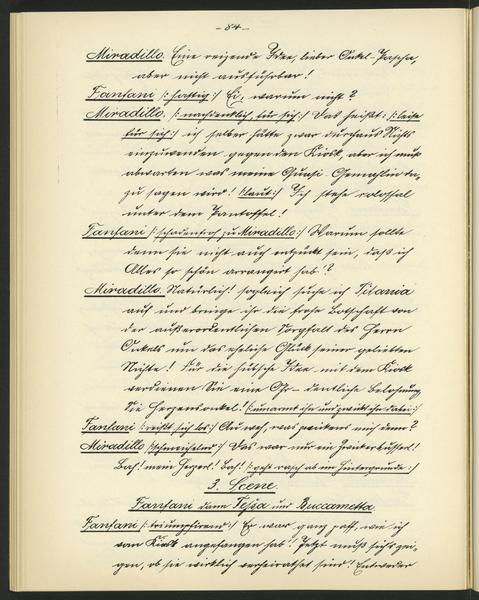 - 84 -
Miradillo. Eine reizende Idee, lieber Onkel-Pascha,
aber nicht ausführbar!
Fanfani /: haftig :/ Ei, warum nicht?
Miradillo. /: nachdenklich, für sich :/ Das heißt: /: leise
für sich :/ ich selber hätte zwar durchaus Nichts
einzuwenden gegen den Kiosk, aber ich muß
abwarten was meine Quasi-Gemahlin da-
zu sagen wird! /: laut :/ Ich stehe colossal
unter dem Pantoffel!
Fanfani /: schadenfroh zu Miradillo :/ Warum sollte
denn sie nicht auch entzückt sein, daß ich
Alles so schön arrangirt hab'?
Miradillo. Natürlich! sogleich suche ich Titania
auf und bringe ihr die frohe Botschaft von
der außerordentlichen Sorgfalt des Herrn
Onkels um das eheliche Glück seiner geliebten
Nichte! Für die hübsche Idee mit dem Kiosk
verdienen Sie eine Or-dentliche Belohnung
Sie Herzensonkel! /: umarmt ihn und zwickt ihn dabei :/
Fanfani /: reißt sich los :/ Au weh, was zwickens mich denn?
Miradillo /: schmeichelnd :/ Das war nur ein Zwickerbusserl!
Bah! mein Herzerl! Bah! /: geht rasch ab im Hintergrunde :/
3. Scene.
Fanfani dann Tessa und Buccametta.
Fanfani /: triumpfirend :/ Er war ganz paff, wie ich
vom Kiosk angefangen hab'! Jetzt muß sich's zei-
gen, ob sie wirklich verheirathet sind! Entweder